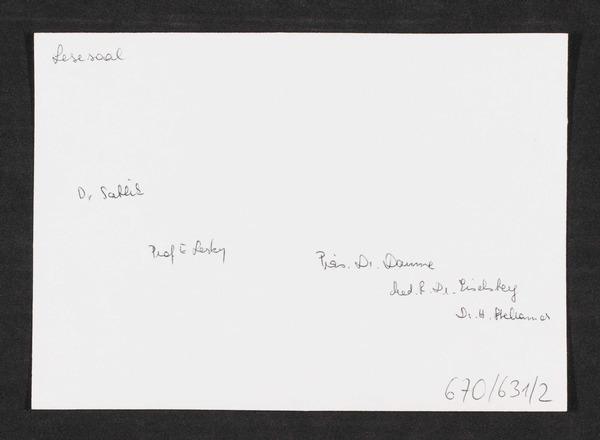 Lesesaal
Dr. Sablik
Prof E Lesky
Präs. Dr. Daume
Med. R. Dr. Eiselsberg
Dr. H.
670/631/2